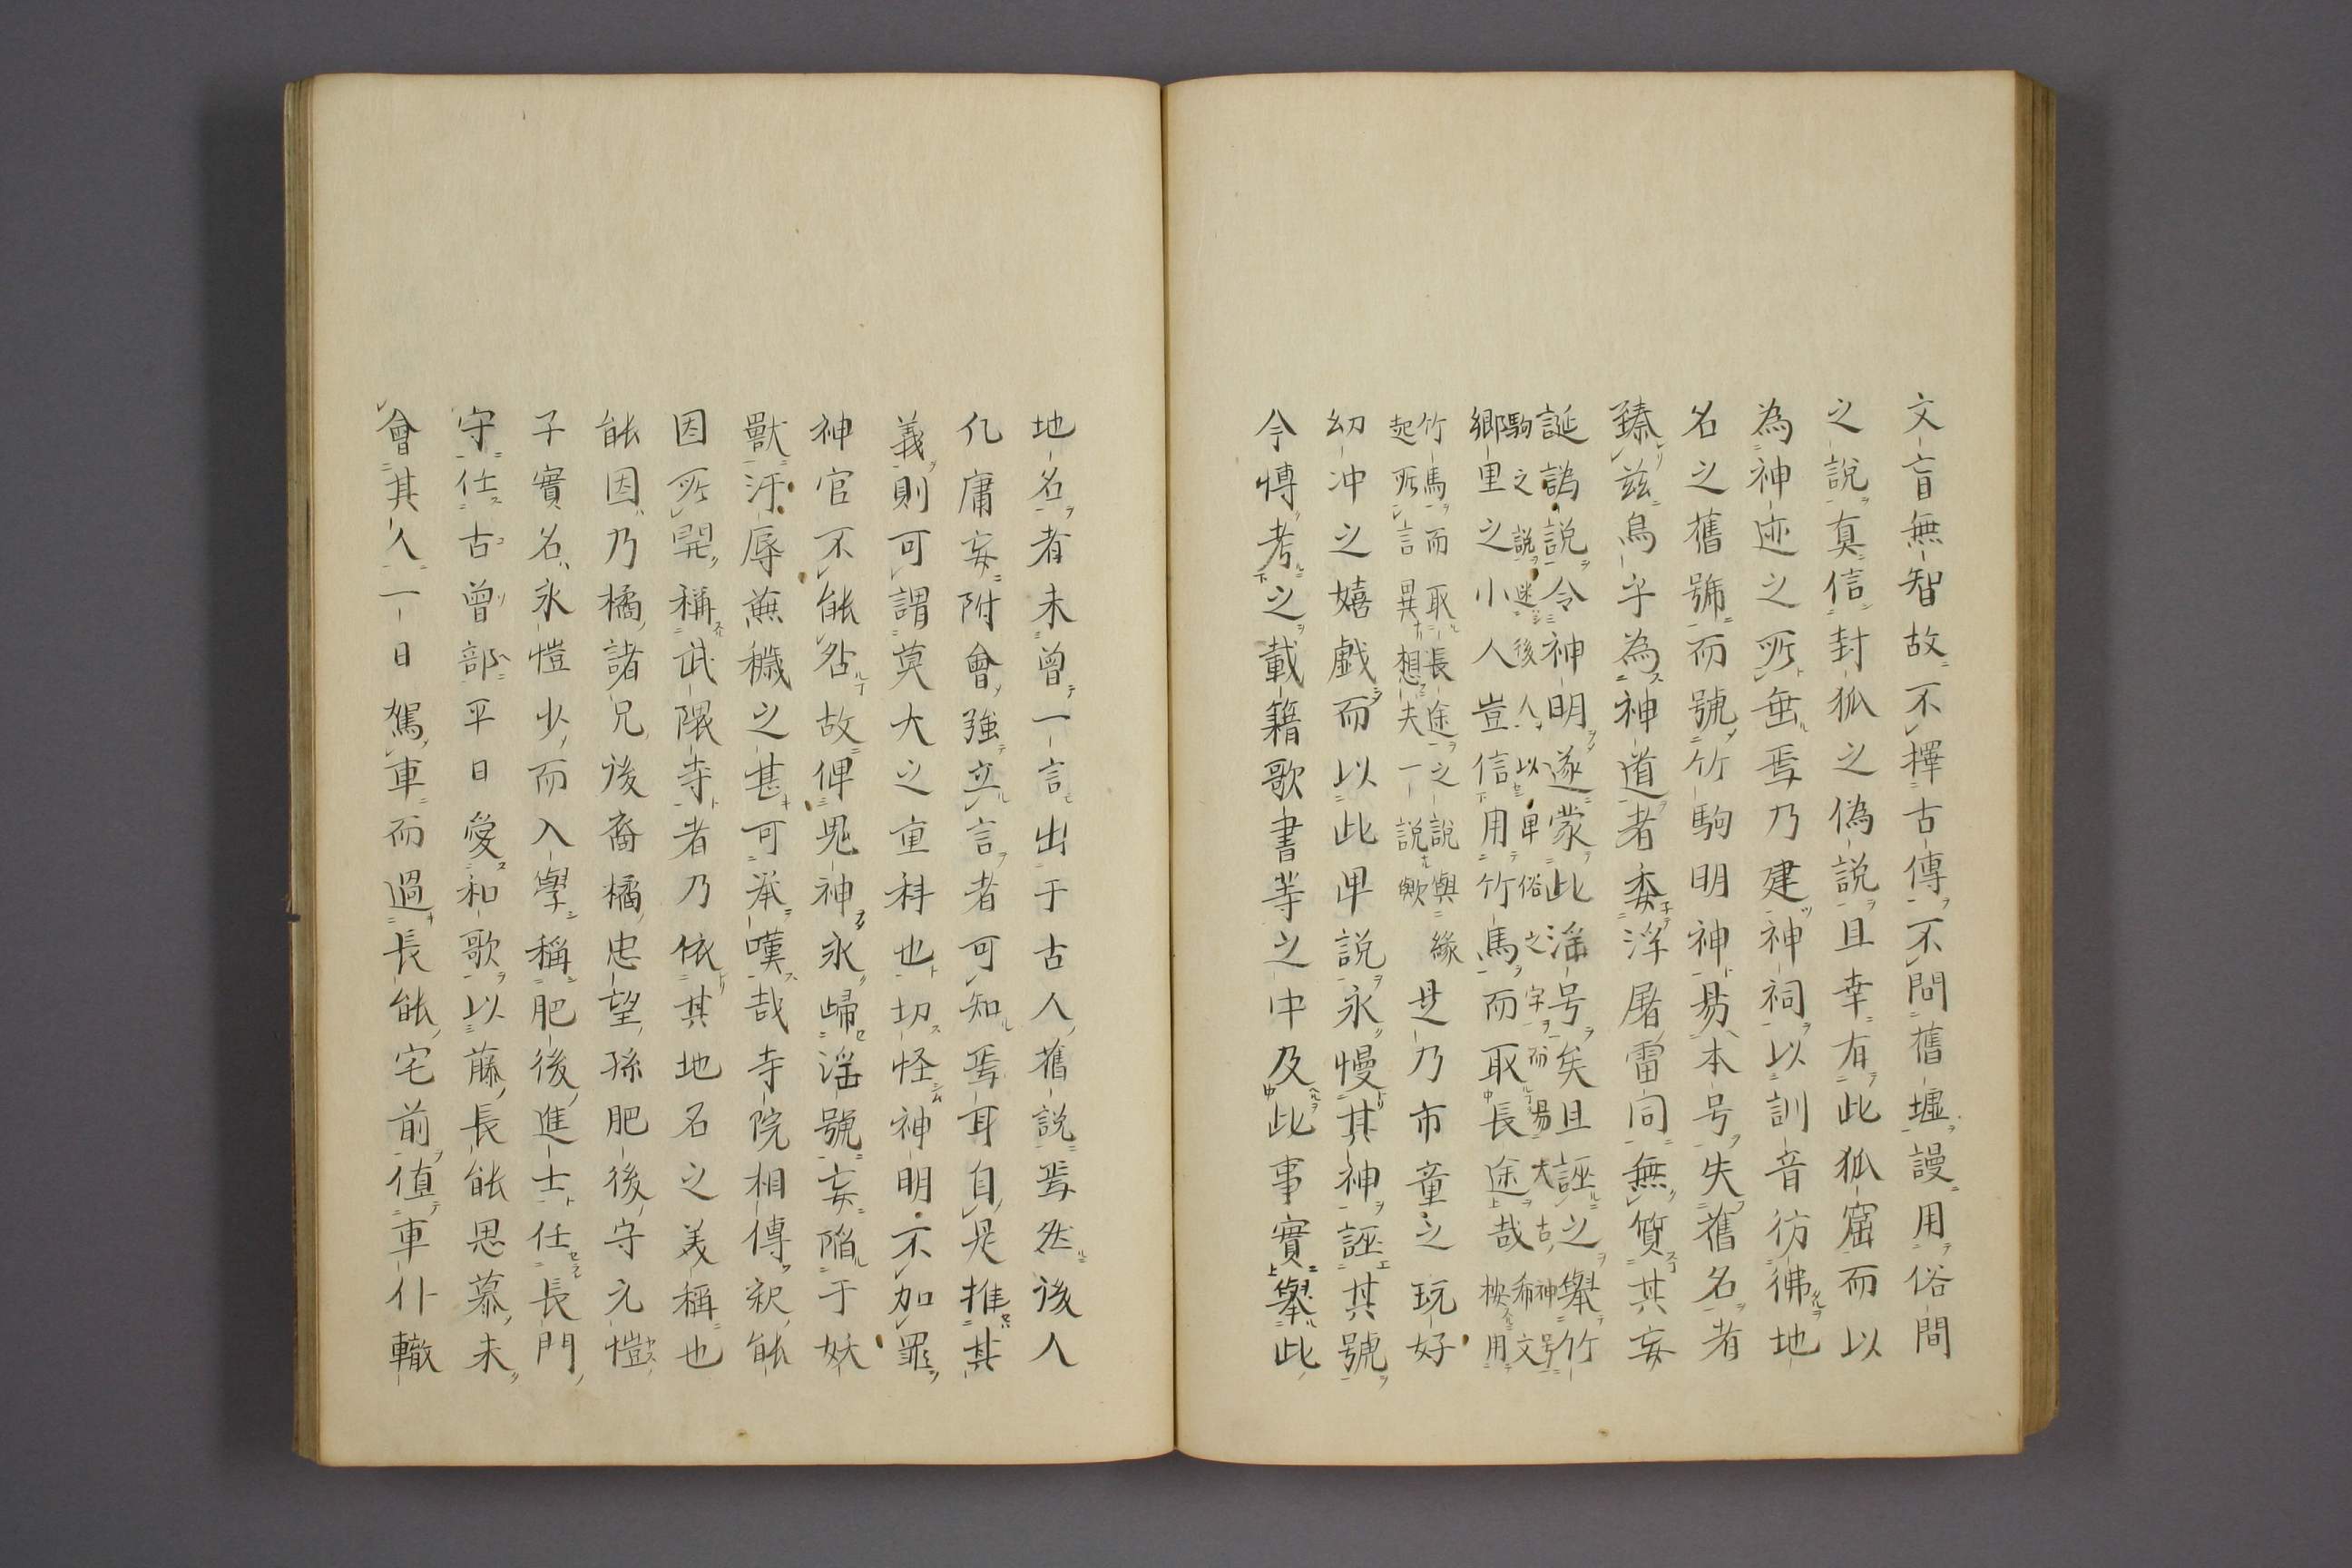 文盲無智故不擇古傳不問舊墟謾用俗間
之說真信封狐之偽說且幸有此狐窟而以
為神迹之所垂焉乃建神祠以訓音彷彿地
名之舊號而號竹駒明神易本号失舊名者
臻茲烏乎為神道者委浮屠雷同無質其妄
誕譌說令神明遂蒙此淫号矣且誣之舉竹
駒之說迷後人以卑俗之字而易大古神号
鄉里之小人豈信用竹馬而取長途哉
竹馬而取長途之說與緣
起所言異想夫一說歟
是乃市童之玩好
幼冲之嬉戯而以此卑說永慢其神誣其號
今博考之載籍歌書等之中及此事實舉此
地名者未曾一言出于古人舊說焉然後人
化庸妄附會強立言者可知焉耳自是推其
義則可謂莫大之重科也切怪神明不加罪
神官不能咎故俾鬼神永歸淫號妄陷于妖
獸汙辱蕪穢之甚可举嘆哉寺院相傳釈能
因所開稱武隈寺者乃依其地名之美稱也
能因乃橘諸兄後裔橘忠望孫肥後守元愷
子實名永愷少而入學稱肥後進士任長門
守仕古曾部平日愛和歌以藤長能思慕未
會其人一日駕車而過長能宅前值車仆轍